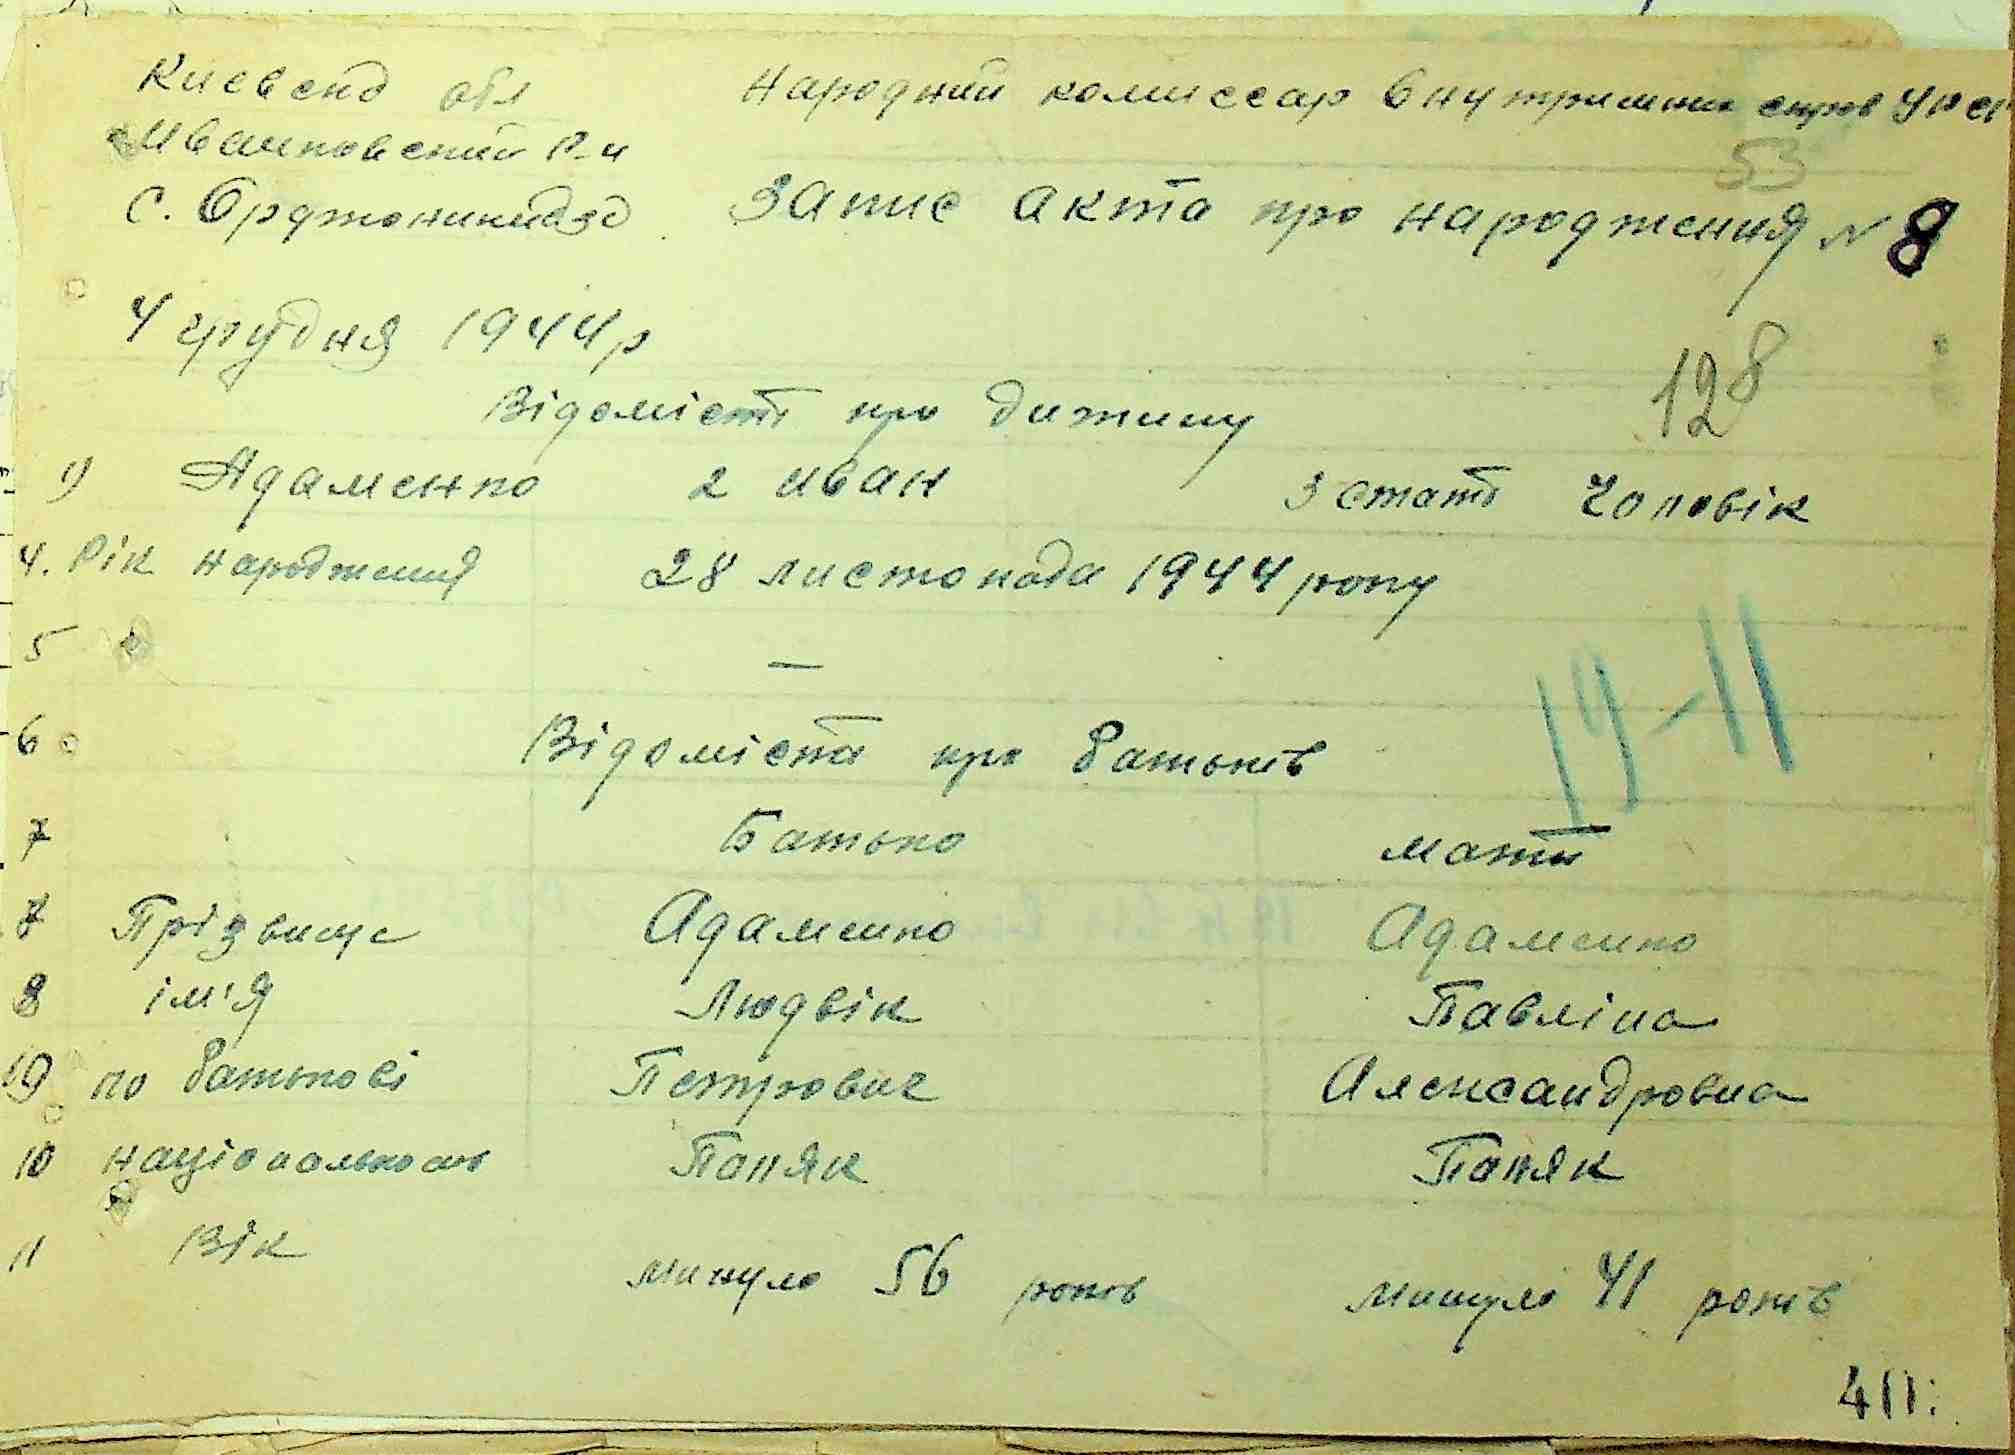 Киевск обл Народний комиссар внутришних справ
Иванковский Р-н
53
С. Орджоникидзе Запис акта про народження № 8
4 грудня 1944 р
128
Відомісті про дитину
1) Адаменко 2 иван 3 стать Чоловік
4. Рік народження 28 листопада 1944 року
5 —
19-11
6 Відоміста про батьків
7 Батько мати
7 Прізвище Адаменко Адаменко
8 ім'я Людвік Павліна
9 по батькові Петрович Александровна
10 національность Паляк Паляк
11 Вік минуло 56 років минуло 41 років